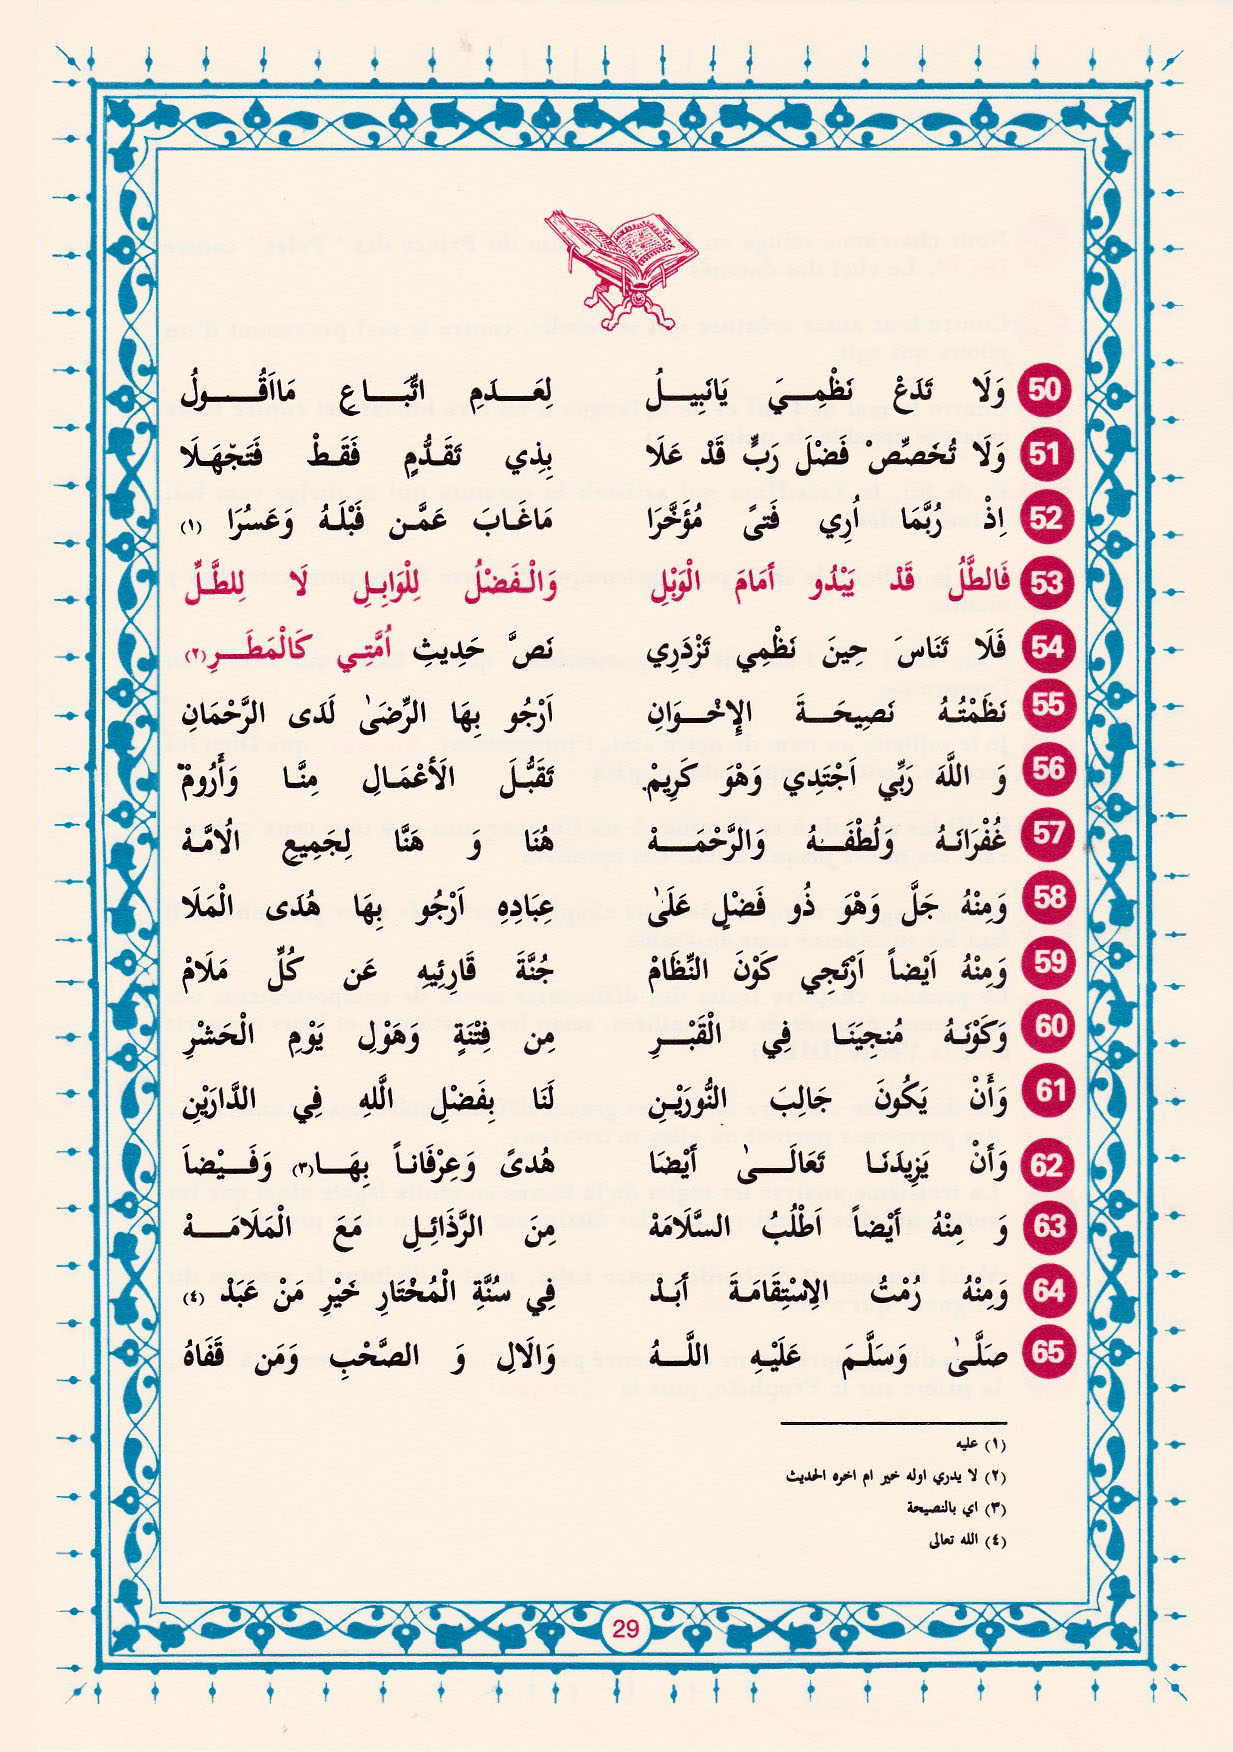 50 وَلَا تَدَعْ نَظْمِيَ يَانَبِيلُ لِعَدَمِ اتِّبَاعِ مَااَقُولُ
51 وَلَا تُخَصِّصْ فَضْلَ رَبٍّ قَدْ عَلَا بِذِي تَقَدُّمٍ فَقَطْ فَتَجْهَلَا
52 اِذْ رُبَّمَا اُرِي فَتىً مُؤَخَّرَا مَاغَابَ عَمَّن قَبْلَهُ وَعَسُرَا (١)
53 فَالطَّلُ قَدْ يَبْدُو أَمَامَ الْوَبْلِ وَالْفَضْلُ لِلْوَابِلِ لَا لِلطَّلِّ
54 فَلَا تَنَاسَ حِينَ نَظْمِي تَزْدَرِي نَصَّ حَدِيثِ اُمَّتِي كَالْمَطَرِ(٢)
55 نَظَمْتُهُ نَصِيحَةَ الإِخْوَانِ اَرْجُو بِهَا الرِّضَىٰ لَدَى الرَّحْمَانِ
56 وَ اللَّهَ رَبِّي اَجْتَدِي وَهْوَ كَرِيمْ. تَقَبُّلَ الأَعْمَالِ مِنَّا وَأَرُومْ
57 غُفْرَانَهُ وَلُطْفَهُ وَالرَّحْمَهْ هُنَا وَ هَنَّا لِجَمِيعِ الْامَّهْ
58 وَمِنْهُ جَلَّ وَهْوَ ذُو فَضْلٍ عَلَىٰ عِبَادِهِ اَرْجُو بِهَا هُدَى الْمَلَا
59 وَمِنْهُ اَيْضاً اَرْتَجِي كَوْنَ النِّظَامْ جُنَّةَ قَارِئِيهِ عَن كُلِّ مَلَامْ
60 وَكَوْنَهُ مُنجِيَنَا فِي الْقَبْرِ مِن فِتْنَةٍ وَهَوْلِ يَوْمِ الْحَشْرِ
61 وَأَنْ يَكُونَ جَالِبَ النُّورَيْنِ لَنَا بِفَضْلِ الَّلهِ فِي الدَّارَيْنِ
62 وَأَنْ يَزِيدَنَا تَعَالَىٰ أَيْضَا هُدىً وَعِرْفَاناً بِهَا(٣) وَفَيْضاَ
63 وَ مِنْهُ أَيْضاً اَطْلُبُ السَّلَامَهْ مِنَ الرَّذَائِلِ مَعَ الْمَلَامَهْ
64 وَمِنْهُ رُمْتُ الاِسْتِقَامَةَ أَبَدْ فِي سُنَّةِ الْمُخْتَارِ خَيْرِ مَنْ عَبَدْ (٤)
65 صَلَّىٰ وَسَلَّمَ عَلَيْهِ اللَّهُ وَالَالِ وَ الصَّحْبِ وَمَن قَفَاهُ
(١) عليه
(٢) لا يدري اوله خير ام اخره الحديث
(٣) اي بالنصيحة
(٤) الله تعالى
29